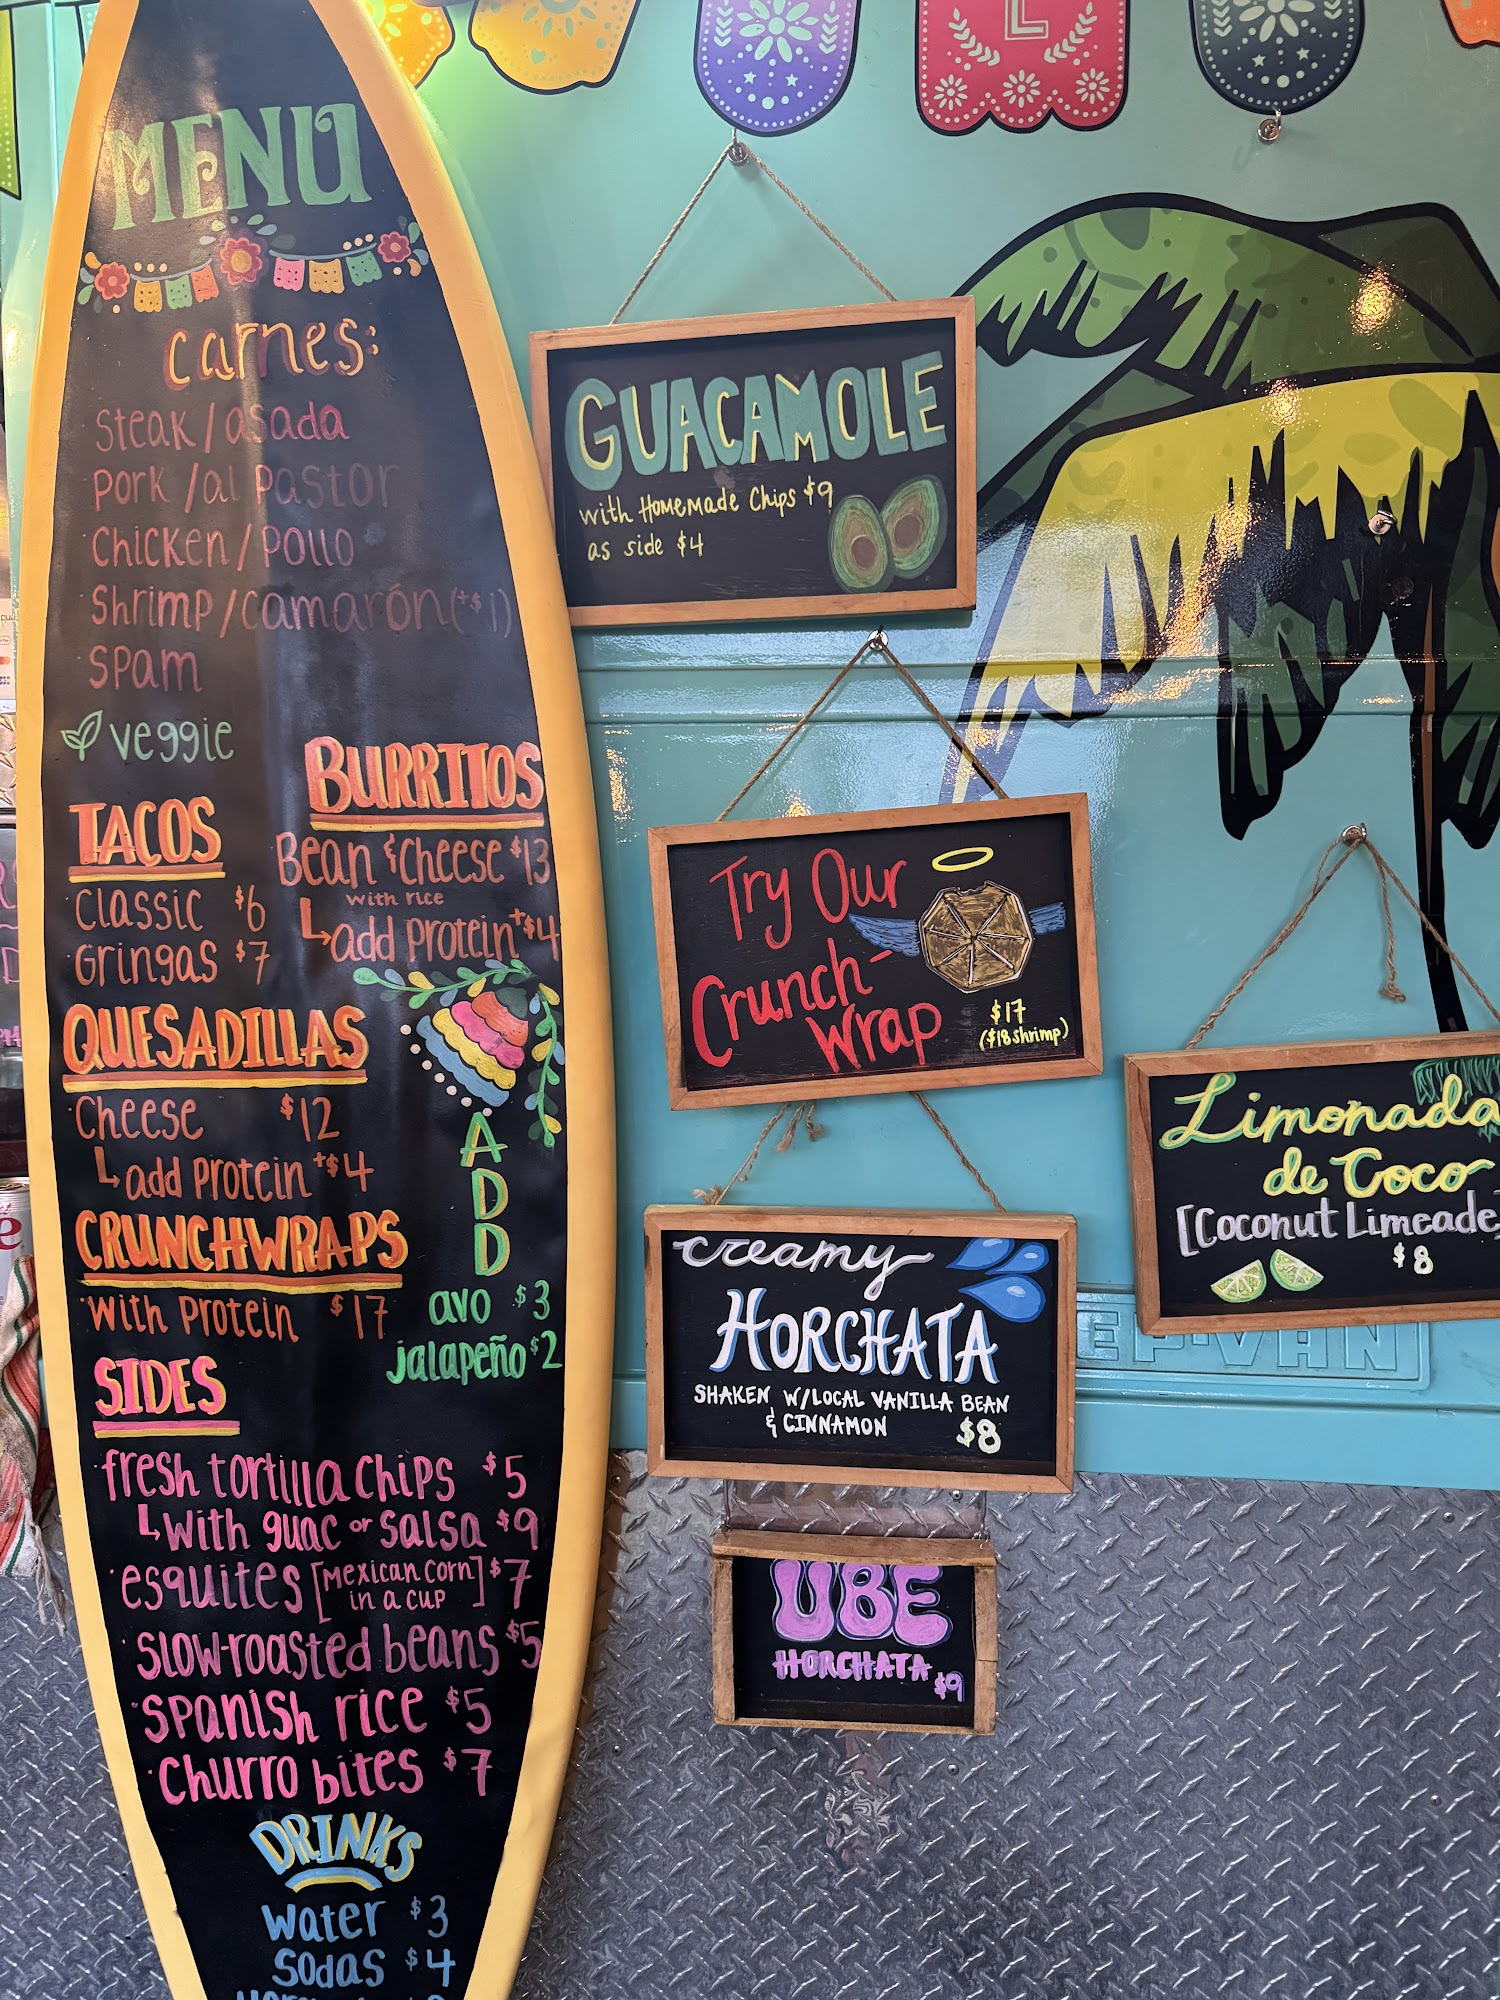 MENU
carnes:
steak/asada
pork/al pastor
chicken/pollo
shrimp/camarón (+$1)
spam
veggie
TACOS
classic $6
gringas $7
BURRITOS
Bean & cheese $13
with rice
add protein +$4
QUESADILLAS
cheese $12
add protein +$4
CRUNCHWRAPS
with protein $17
ADD
avo $3
jalapeño $2
SIDES
fresh tortilla chips $5
with guac or salsa $9
esquites [Mexican corn in a cup] $7
slow-roasted beans $5
spanish rice $5
churro bites $7
DRINKS
water $3
sodas $4
GUACAMOLE
with Homemade Chips $9
as side $4
Try Our
Crunch-
Wrap
$17
($18 shrimp)
creamy
HORCHATA
SHAKEN W/LOCAL VANILLA BEAN
& CINNAMON $8
UBE
HORCHATA $9
Limonada
de Coco
[Coconut Limeade]
$8
EP-VAN
L